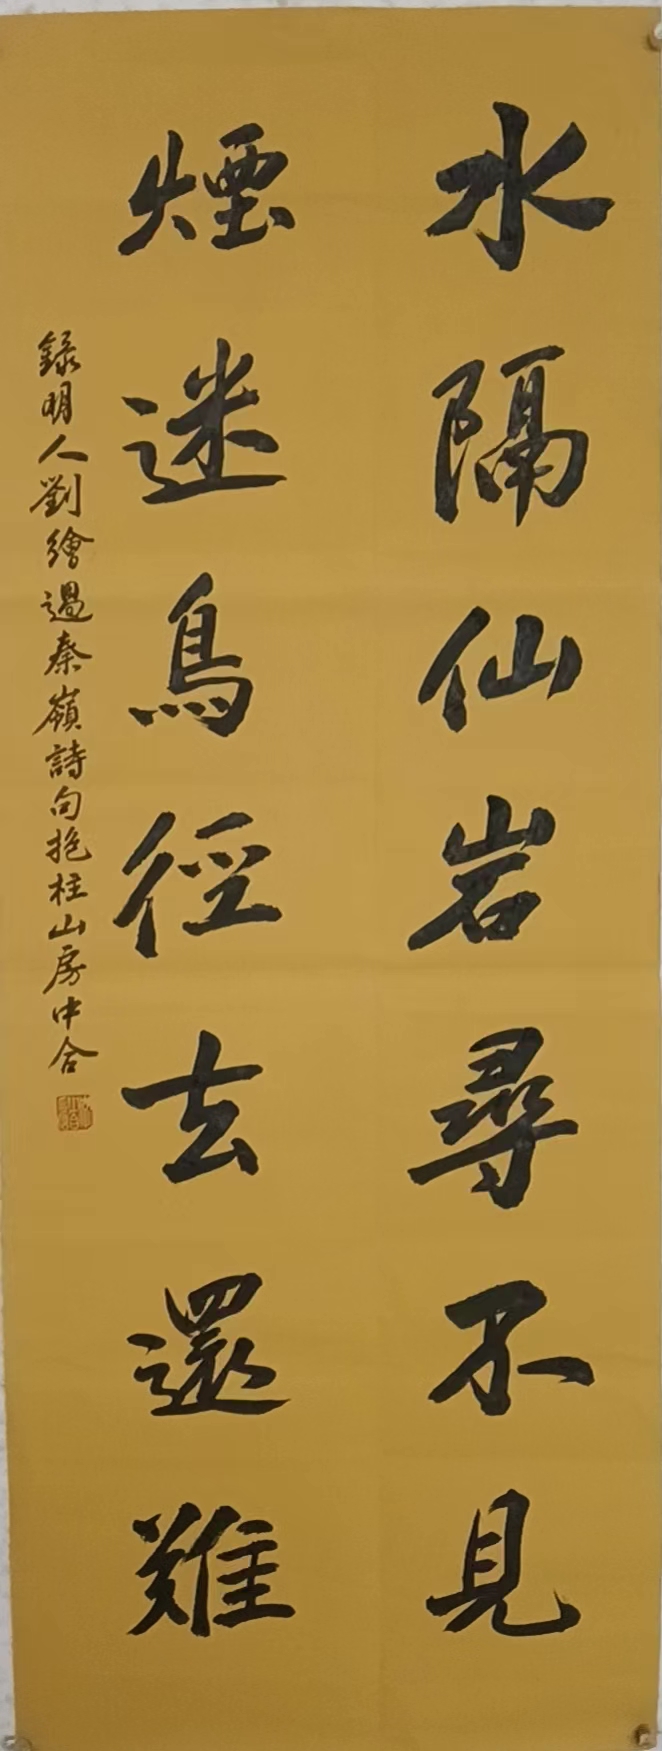 水隔仙岩尋不見
煙迷鳥徑去還難
録明人劉繪過秦嶺詩句抱柱山房中合